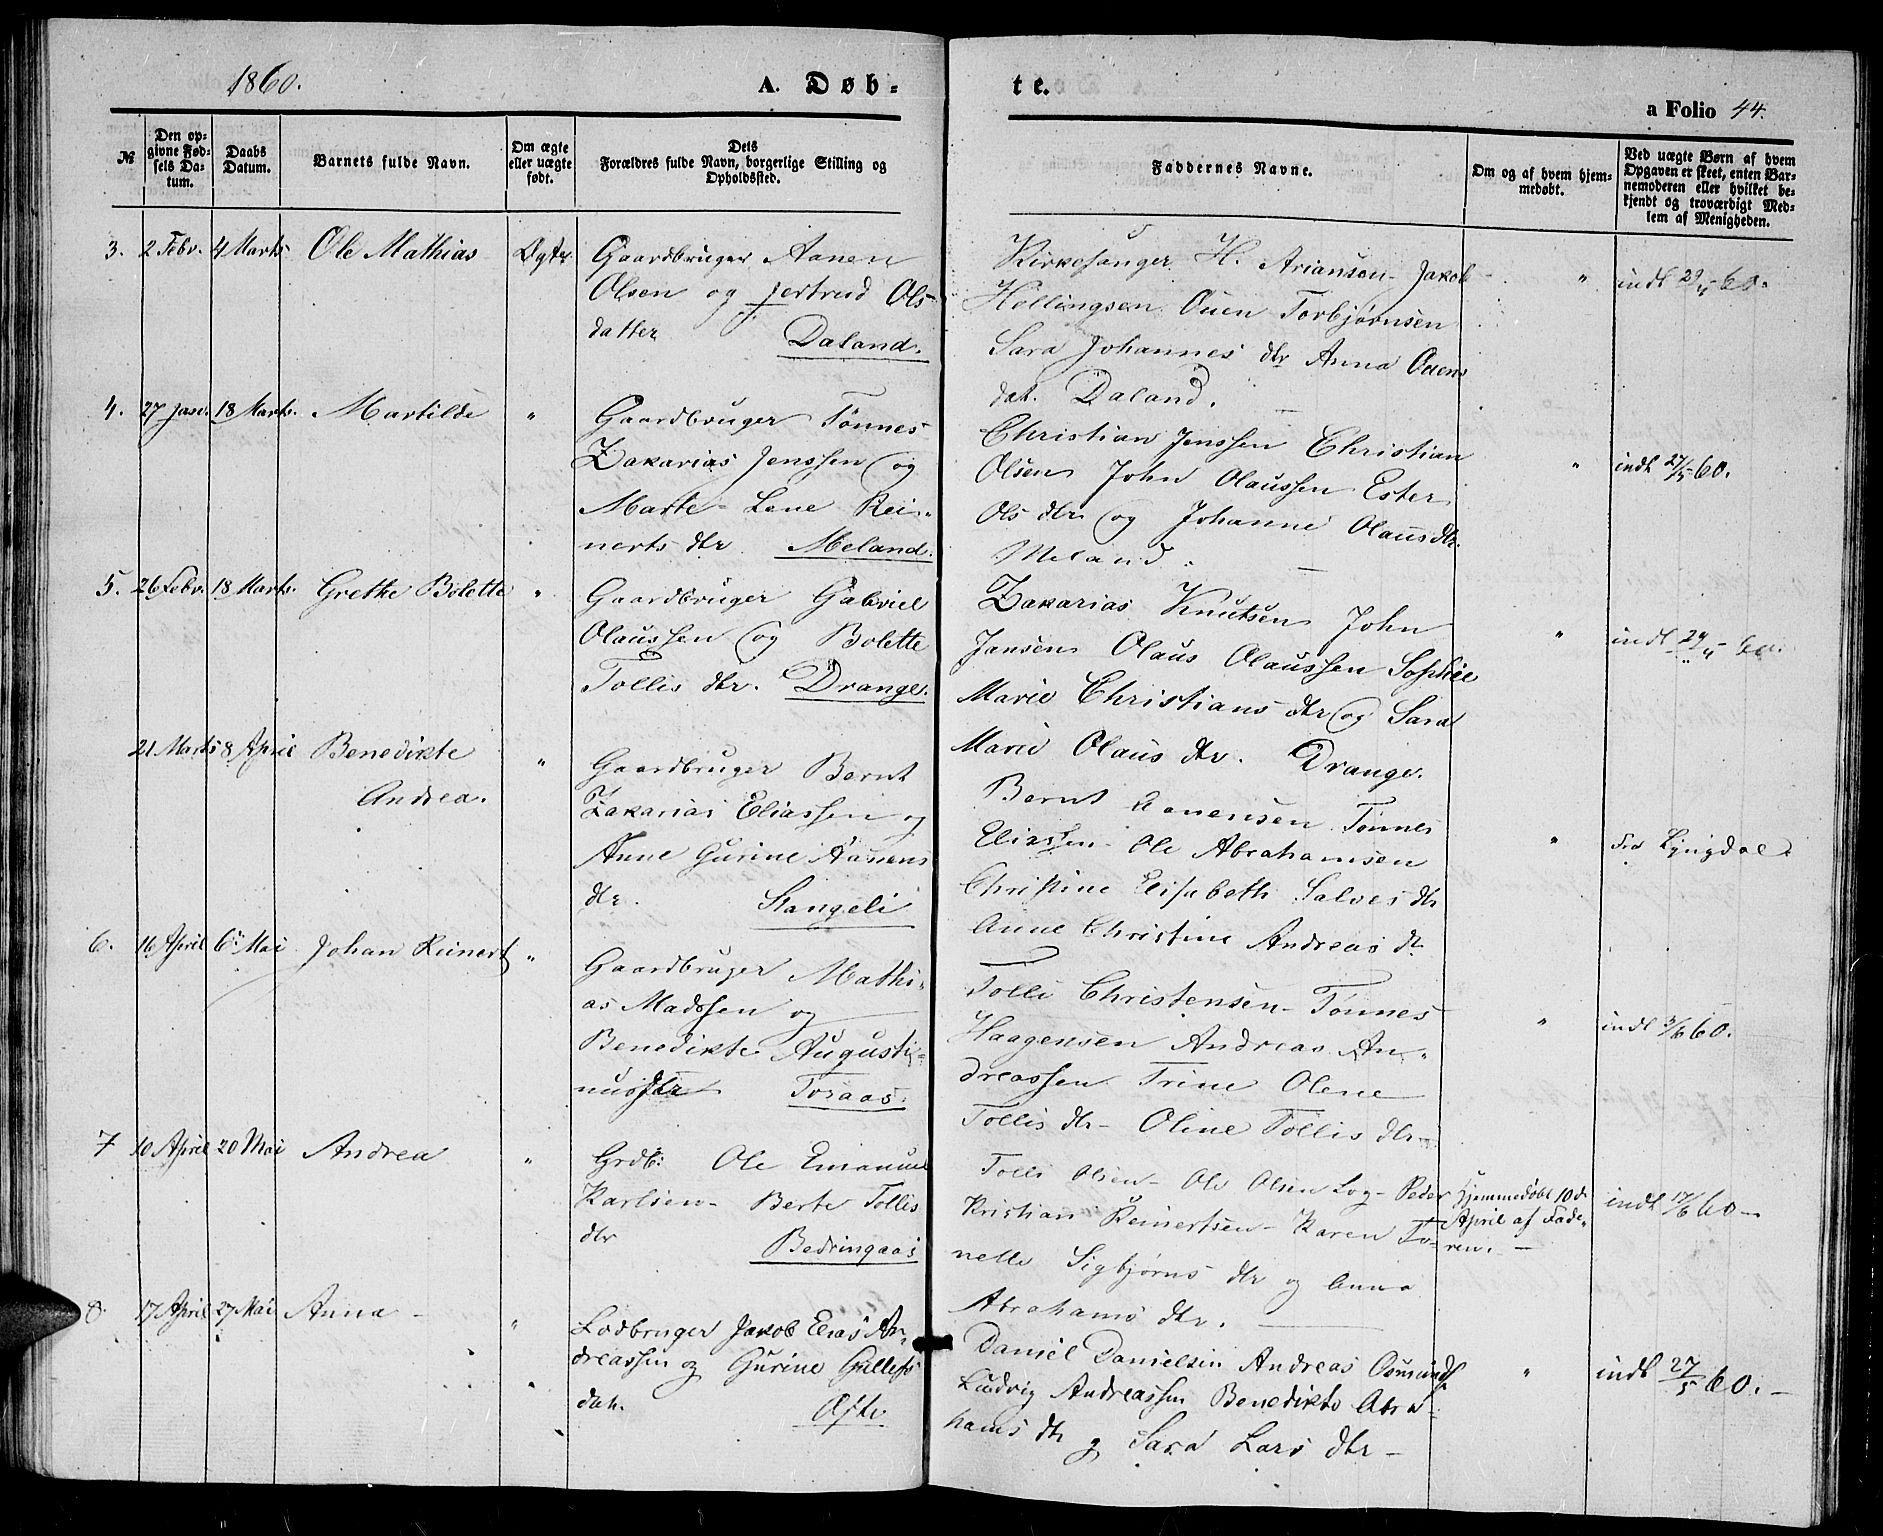 1860.
A. Døb-
te.
a Folio 44.
№
Den op-
givne Fød-
sels Da-
tum.
Daabs
Datum.
Barnets fulde Navn.
Om ægte
eller uægte
født.
Dels
Forældres fulde Navn, borgerlige Stilling og
Opholdssted.
Faddernes Navne.
Om og af hvem hjem-
medøbt.
Ved uægte Børn af hvem
Opgaven er skeet, enten Bar-
nemoderen eller hvilket be-
kjendt og troværdigt Med-
lem af Menigheden.
3. 2 Febr. 4 Marts Ole Mathias Ægte.
Gaardbruger Aanen
Olsen og Jertrud Ols-
datter Daland.
Kirkesanger H. Ariansen - Jakob
Hellingsen Ouen Torbjørnsen
Sara Johannes dtr Anna Ouens
dat. Daland.
" indt 29/4 60.
4. 27 Jan. 18 Marts. Martilde "
Gaardbruger Tønnes
Zakarias Jenssen og
Marte - Lene Rei-
nerts dtr Meland.
Christian Jenssen Christian
Olsen John Olaussen Ester
Ols dtr og Johanne Olaus dtr.
Meland.
" indt 27/5 60.
5. 26 Febr. 18 Marts. Grethe Bolette "
Gaardbruger Gabriel
Olaussen og Bolette
Tollis dtr. Drange.
Zakarias Knutsen John
Jansen Olaus Olaussen Sophie
Marie Christians dtr og Sara
Marie Olaus dtr. Drange.
" indt 29/4 - 60.
21 Marts 8 April Benedikte
Andrea. "
Gaardbruger Bernt
Zakarias Eliassen og
Anne Gurine Aanens
dtr. Stangeli
Bernt Aanensen Tønnes
Eliassen - Ole Abrahamsen
Christine Elisabeth Salves dtr
Anne Christine Andreas dt.
" Fra Lyngdal.
6. 16 April 6. Mai Johan Reinert "
Gaardbruger Mathi-
as Madssen og
Benedikte Augusti-
nusdtr Tosaas.
Tolli Christensen - Tønnes
Haagensen Andreas An-
dreassen Trine Olene
Tollis dtr - Oline Tollis dtr
" indt 3/6 60.
7 10 April 20 Mai Andrea "
Grdb: Ole Emanuel
Karlsen - Berte Tollis
dtr Bedringaas
Tolli Olsen - Ole Olsen Log - Peder
Kristian Reinertsen - Karen To-
nelle Sigbjørns dtr og Anna
Abrahams dtr.
Hjemmedøbt 10 de
April af Fade-
ren. -
indt 17/6 60 -
8. 17 April 27 Mai Anna - "
Lodbruger Jakob Elias An-
dreassen og Gurine Gullefs
dat. Øfte
Daniel Danielsen Andreas Osmunds
Ludvig Andreassen Benedikte Abra-
hams dtr og Sara Lars dtr -
" indt 27/5 60. -